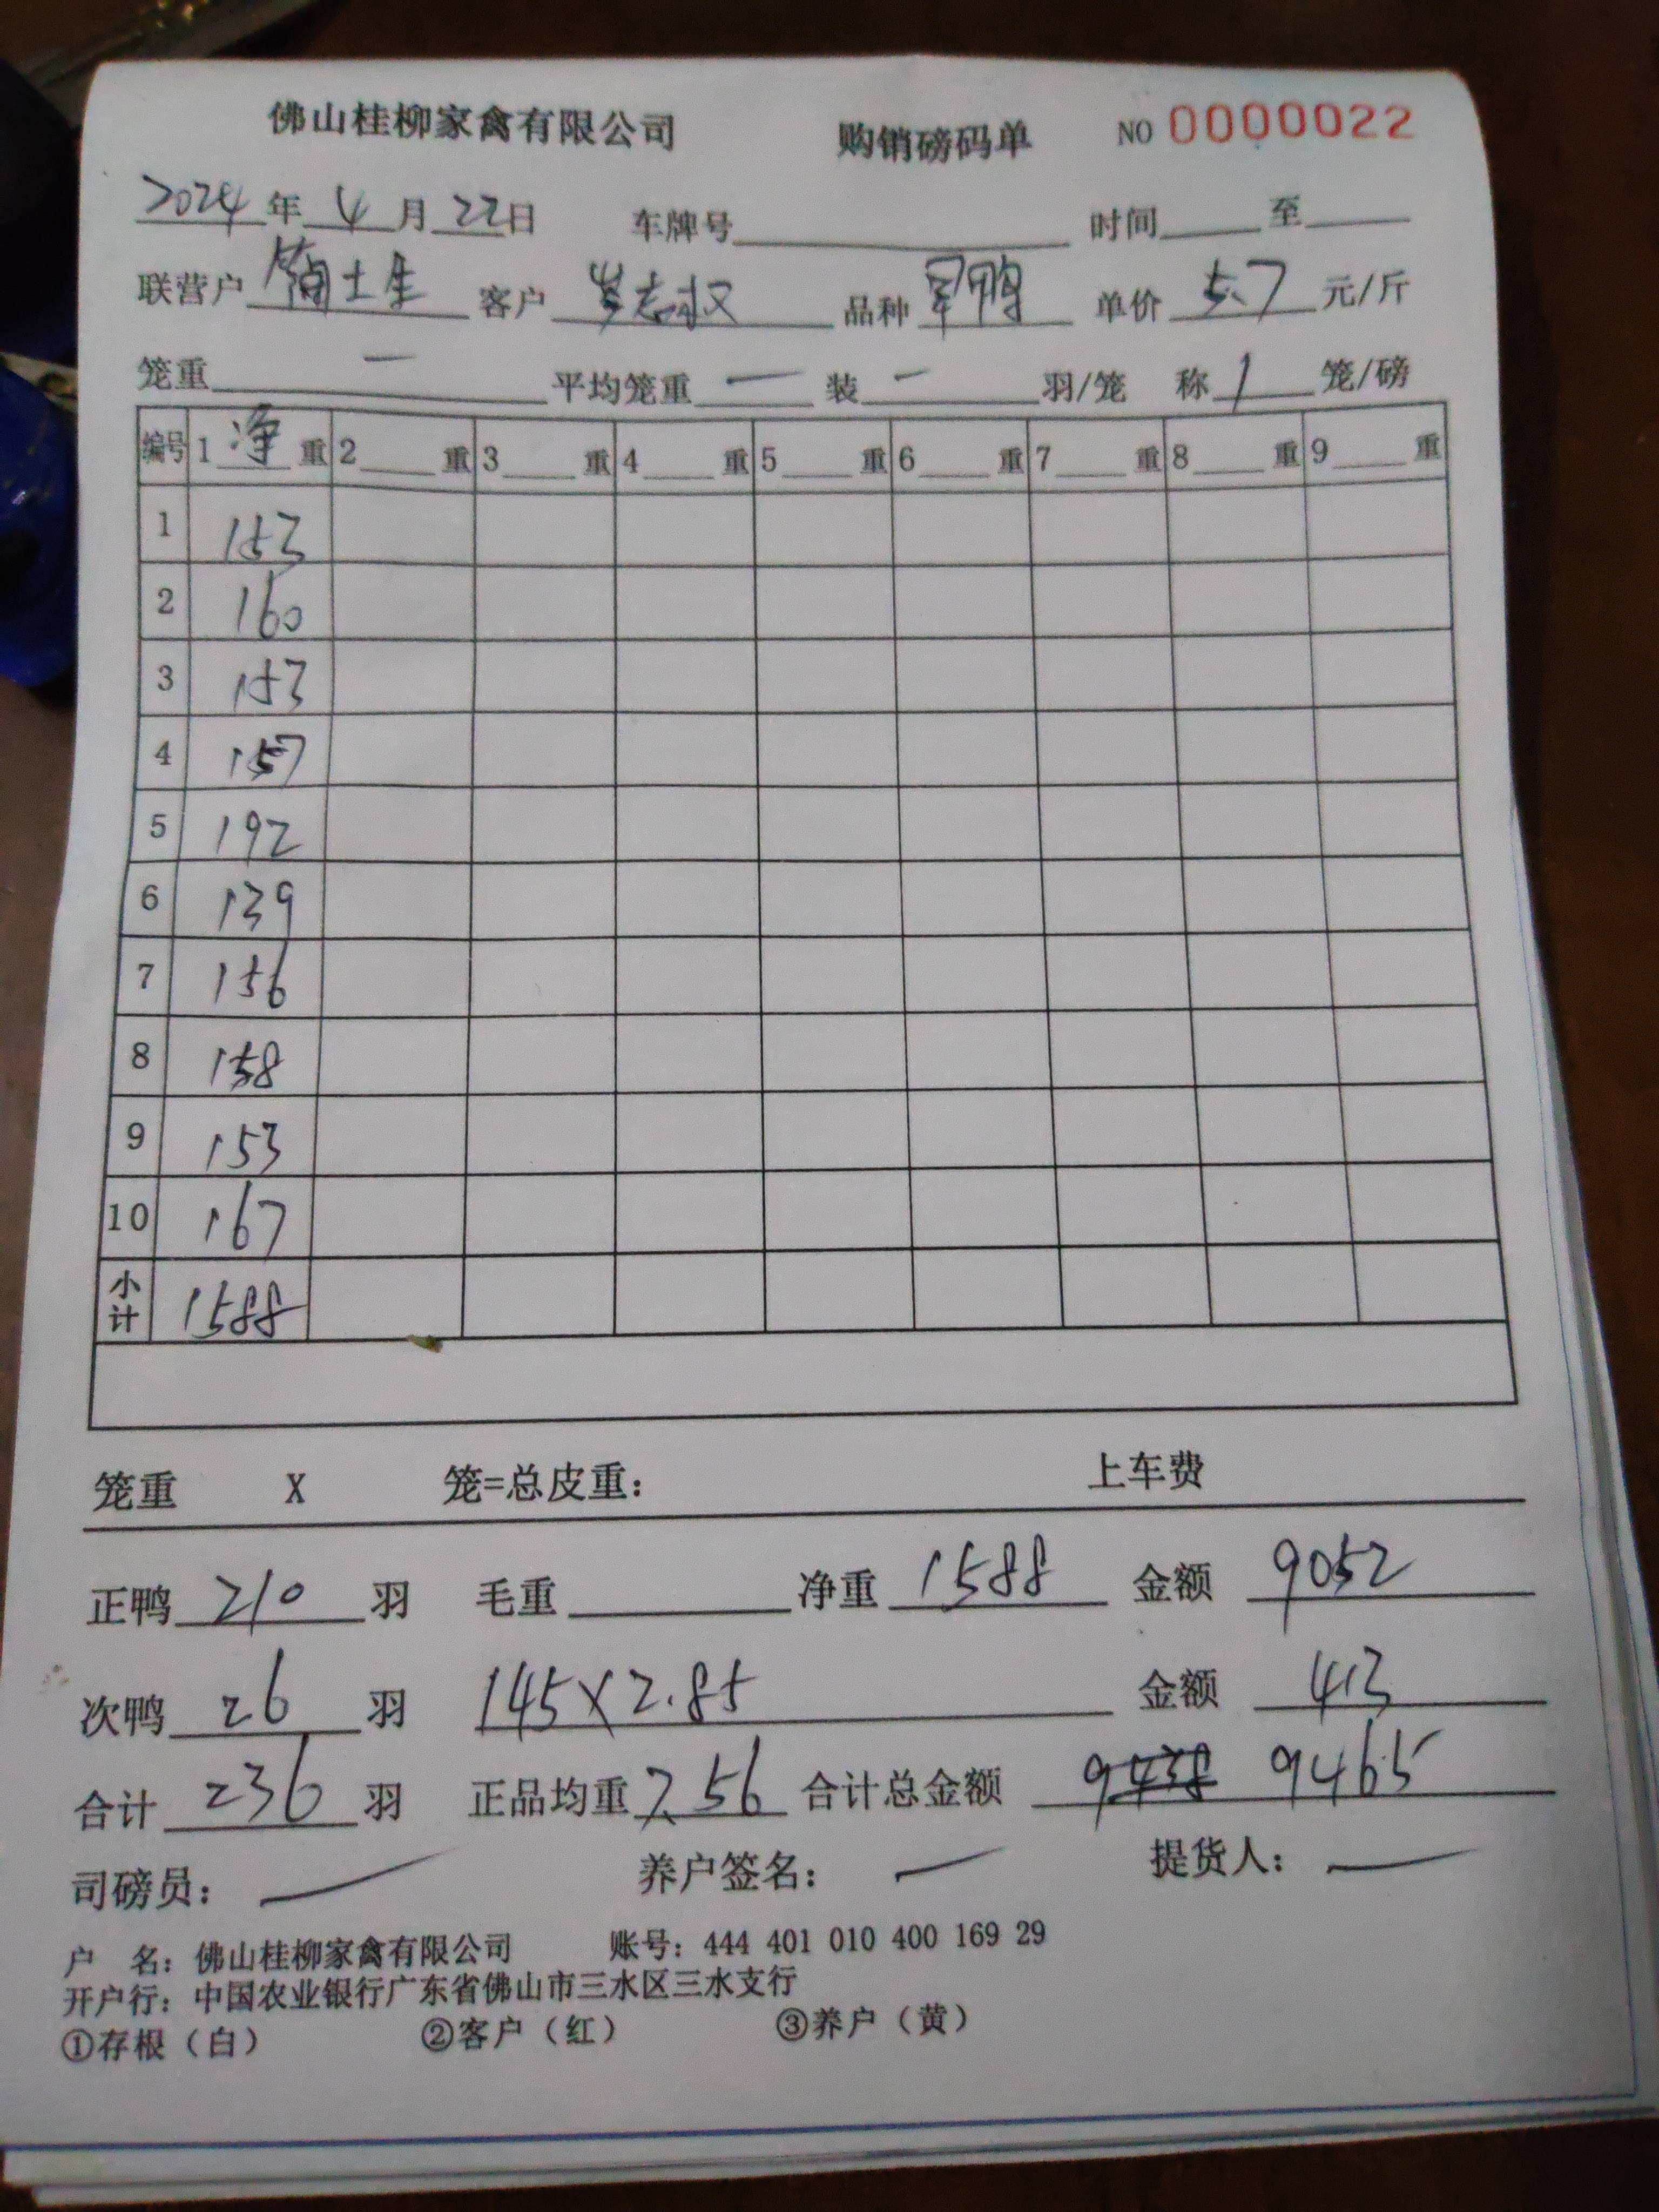 佛山桂柳家禽有限公司 购销磅码单 NO 0000022
2024年 4 月 22日 车牌号 时间 至
联营户 简土生 客户 岑志权 品种 군鸭 单价 5.7 元/斤
笼重 一 平均笼重 一 装 一 羽/笼 称 1 笼/磅
编号 1 净 重 2 重 3 重 4 重 5 重 6 重 7 重 8 重 9 重
1 153
2 160
3 153
4 157
5 192
6 139
7 156
8 158
9 153
10 167
小计 1588
笼重 X 笼=总皮重: 上车费
正鸭 210 羽 毛重 净重 1588 金额 9052
次鸭 26 羽 145X2.85 金额 413
合计 236 羽 正品均重 7.56 合计总金额 9465
司磅员: 养户签名: 提货人:
户 名: 佛山桂柳家禽有限公司 账号: 444 401 010 400 169 29
开户行: 中国农业银行广东省佛山市三水区三水支行
①存根(白) ②客户(红) ③养户(黄)